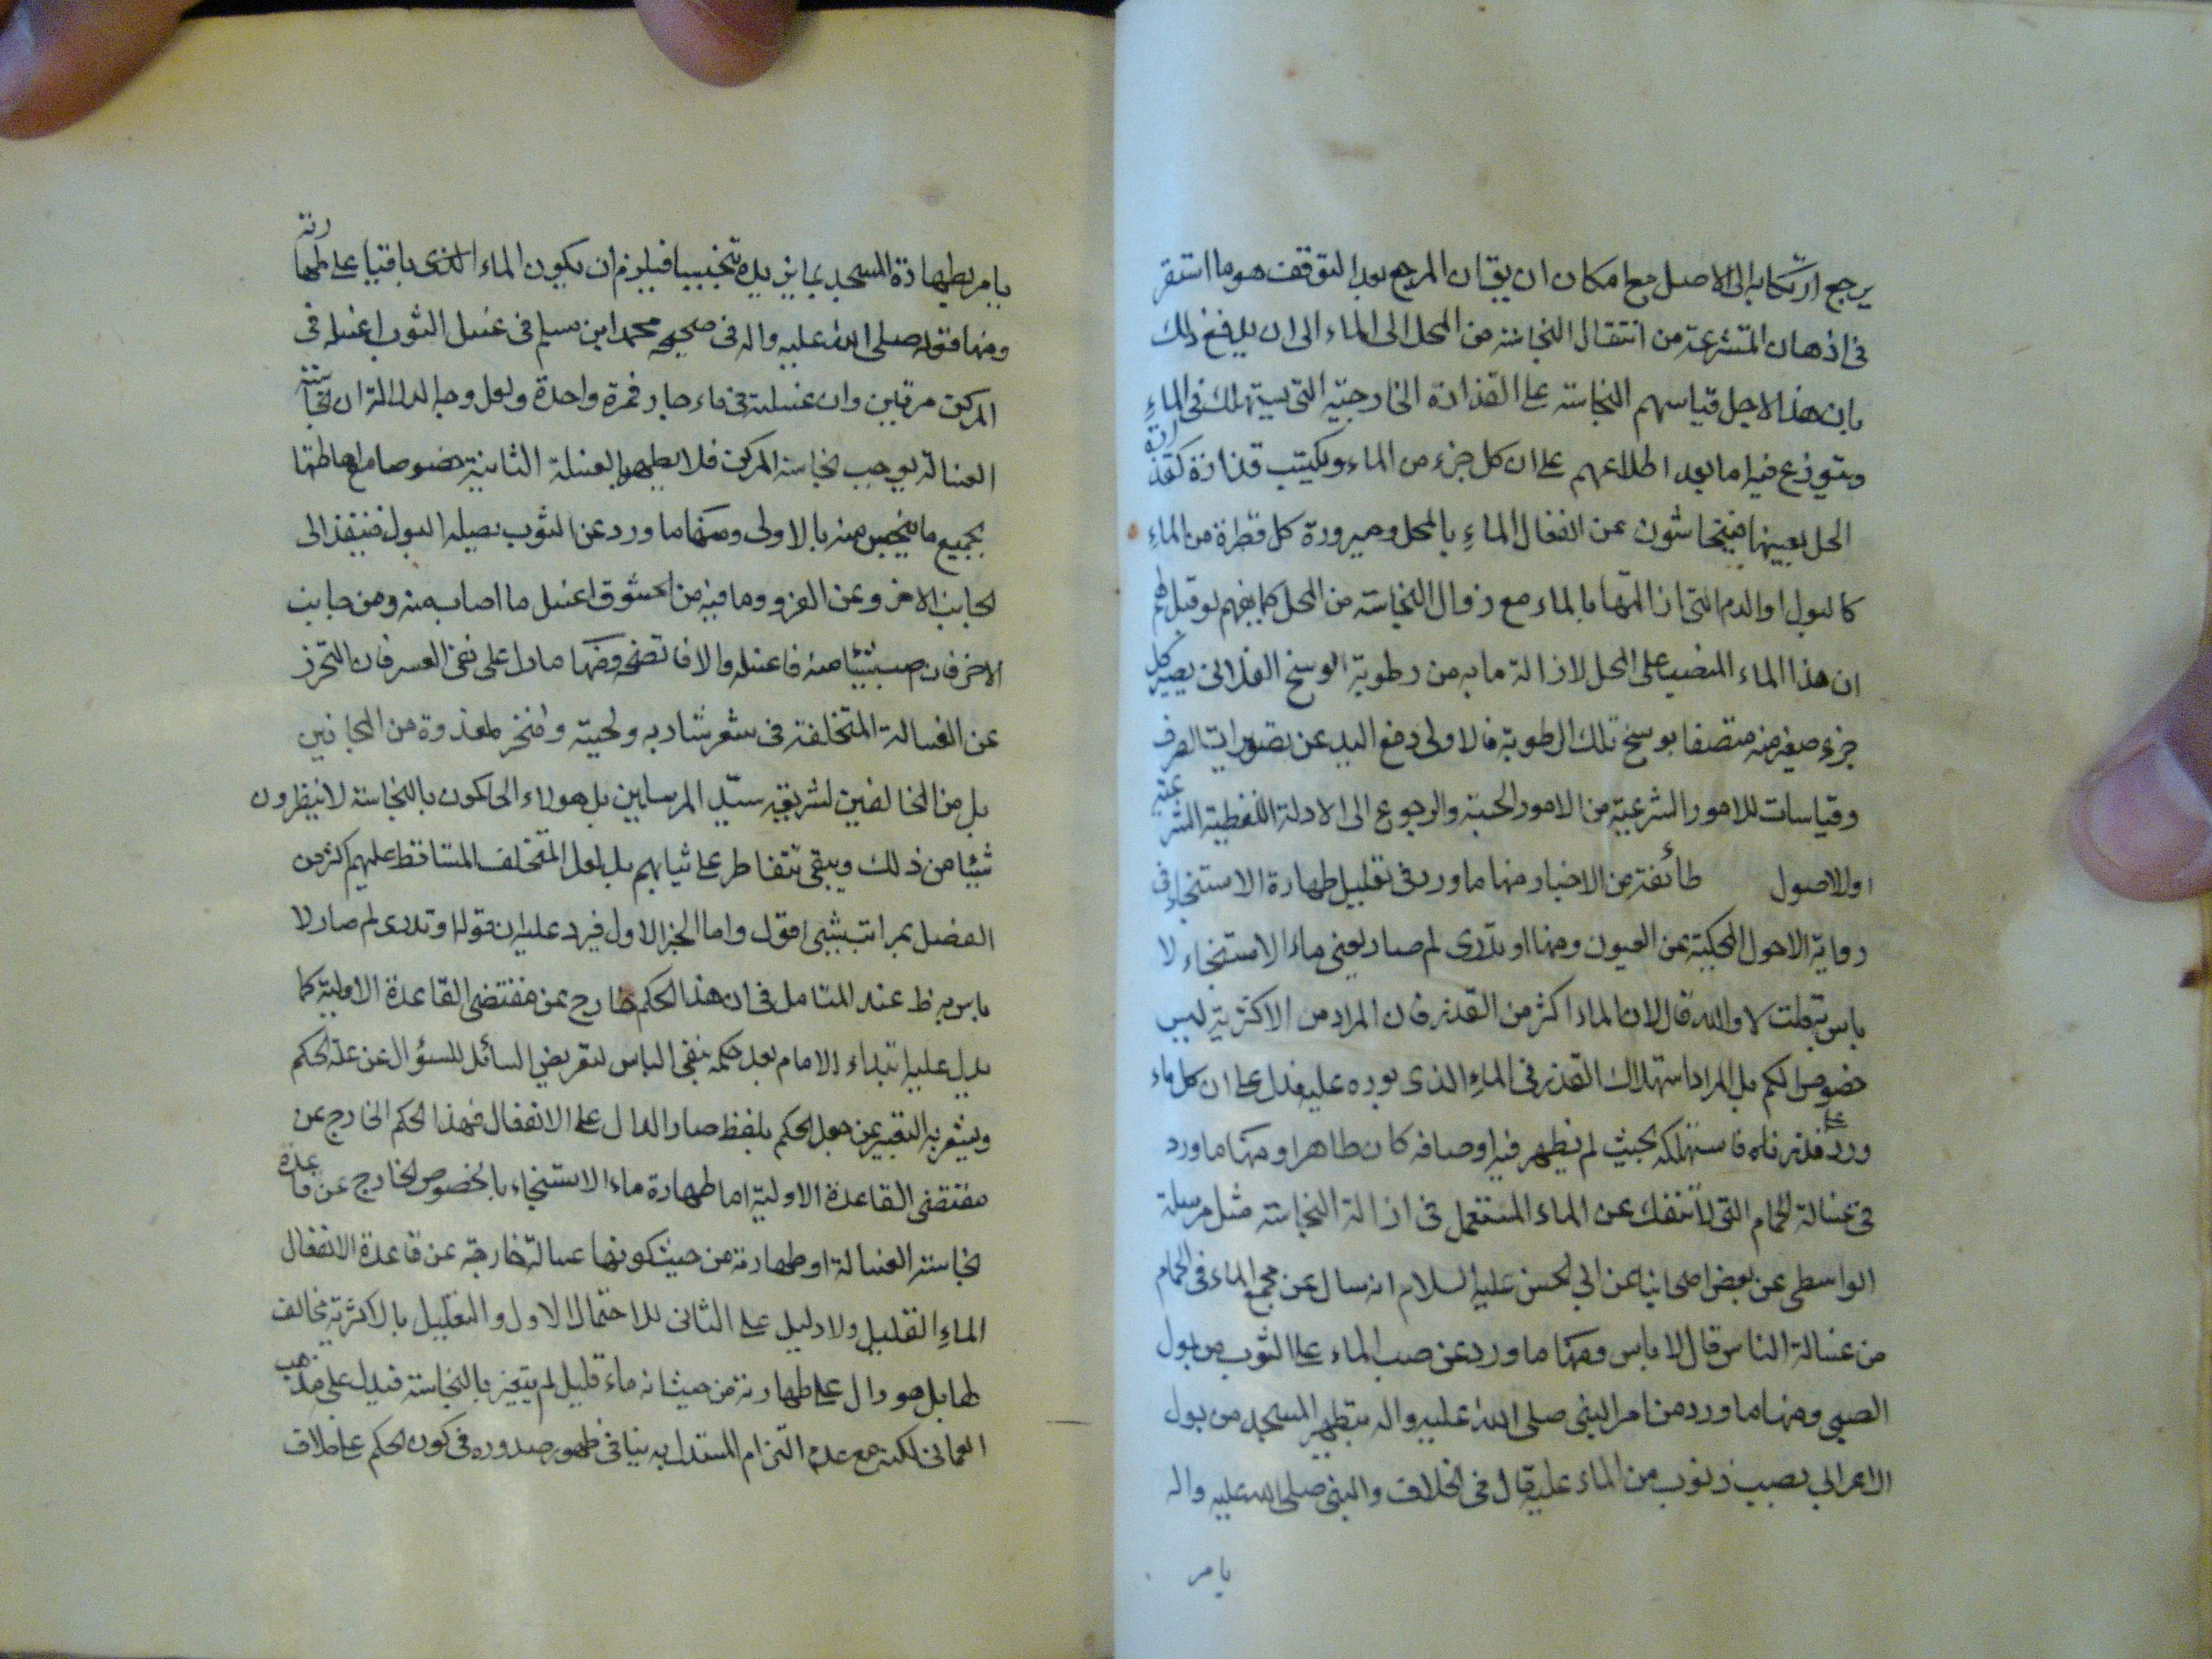 يرجع ارتكابه الى الاصل مع امكان ان يقان المرجع بعد التوقف هو ما استقر
فى اذهان المتشرعة من انتقال النجاسة من المحل الى الماء الى ان يدفع ذلك
بان هذا لاجل قياسهم النجاسة على القذارة الخارجية التى يستهلك فى الماء
ويتوزع فيه اما بعد اطلاعهم على ان كل جزء من الماء ويكتسب قذارة كقذارة
المحل بعينها فيتحاشون عن انفعال الماء بالمحل وصيرورة كل قطرة من الماء
كالبول او الدم التى ازالتها بالماء مع زوال النجاسة من المحل كما يفهم لو قيل لهم
ان هذا الماء المنصب على المحل لازالة ما به من رطوبة الوسخ الفلانى يصير كل
جزء صغير منه متصفا بوسخ تلك الرطوبة فالاولى دفع اليد عن تصورات العرف
وقياسات للامور الشرعية من الامور الحسية والرجوع الى الادلة اللفظية الشرعية
او الاصول طائفة من الاخبار منها ما ورد فى تعليل طهارة الاستنجاء فى
رواية الاحول المحكية عن العيون ومنها او تدرى لم صار يعنى ماء الاستنجاء لا
باس به قلت لا والله قال لان الماء اكثر من القذر فان المراد من الاكثرية ليس
خصوص الكم بل المراد استهلاك القذر فى الماء الذى يورده عليه فدل على ان كل ماء
ورد على قذر فاستهلكه بحيث لم يظهر فيه اوصافه كان طاهرا ومنها ما ورد
فى غسالة الحمام التى لا تنفك عن الماء المستعمل فى ازالة النجاسة مثل مرسلة
الواسطى عن بعض اصحابنا عن ابى الحسن عليه السلام انه سال عن مجمع الماء فى الحمام
من غسالة الناس قال لا باس ومنها ما ورد عن صب الماء على الثوب من بول
الصبى ومنها ما ورد من امر النبى صلى الله عليه واله بتطهير المسجد من بول
الاعرابى بصب ذنوب من الماء عليه قال فى الخلاف والنبى صلى الله عليه واله
يامر
يامر بطهارة المسجد بما يزيده تنجيسا فيلزم ان يكون الماء الذى باقيا على طهارته
ومنها قوله صلى الله عليه واله فى صحيحه محمد ابن مسلم فى غسل الثوب اغسله فى
المركن مرتين وان غسلته فى ماء جار فمرة واحدة ولعل وجه الدلالة ان نجاسة
الغسالة يوجب نجاسة المركن فلا يطهر بالغسلة الثانية خصوصا مع احاطتها
بجميع ما يتنجس منه بالاولى ومنها ما ورد عن الثوب يصيبه البول فينفذ الى
الجانب الاخر وعن الفرو وما فيه من الحشو قال اغسل ما اصاب منه ومن جانب
الاخر فان اصبت شيئا منه فاغسله والا فانضحه ومنها ما دل على نفى العسر فان التحرز
عن الغسالة المتخلفة فى شعر شاربه ولحيته وامنخر لمعذوة من المجانين
بل من المخالفين لشريعة سيد المرسلين بل هولاء الحاكمون بالنجاسة لا ينظرون
شيئا من ذلك ويبقى تتقاطر على ثيابهم بل لعل المتخلف المتساقط عليهم اكثر من
المنفصل بمراتب شتى اقول واما الخبر الاول فيرد عليه ان قوله او تدرى لم صار لا
باس به ظ عند المتامل فى ان هذا الحكم خارج عن مقتضى القاعدة الاولية كما
يدل عليه ابتداء الامام بعد حكمه بنفى الباس لتعريض السائل للسؤال عن علة الحكم
ويشعر به التعبير عن جعل الحكم بلفظ صار الدال على الانتقال فهذا الحكم الخارج عن
مقتضى القاعدة الاولية اما طهارة ماء الاستنجاء بالخصوص الخارج عن قاعدة
نجاسة الغسالة او طهارته من حيث كونها غسالة خارجة عن قاعدة الانفعال
الماء القليل ولا دليل على الثانى للاحتمال الاول والتعليل بالاكثرية مخالف
لها بل هو دال على طهارته من حيث انه ماء قليل لم يتغير بالنجاسة فيدل على مذهب
العمانى لكنه مع عدم التزام المستدل به ينافى ظهور صدوره فى كون الحكم على خلاف